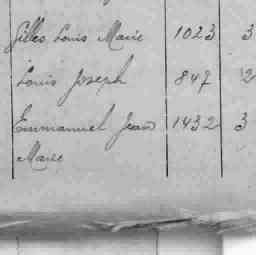 Gilles Louis Marie 1023 3
Louis Joseph 847 2
Emmanuel Jean 1432 3
Marie